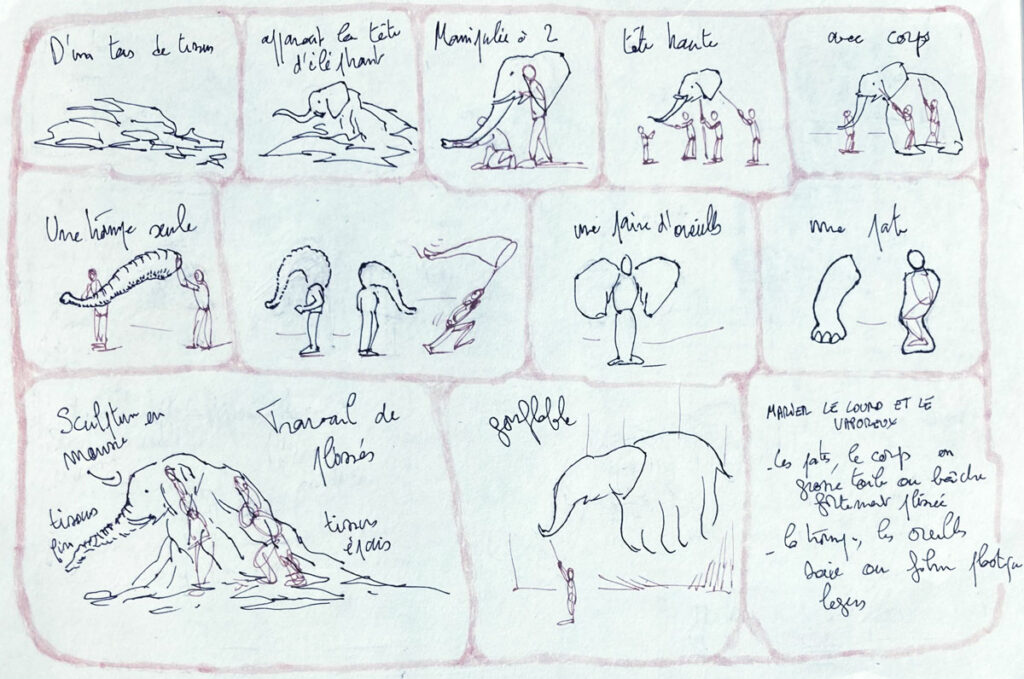 D'un tas de tissus
apparait la tête
d'éléphant
Manipulée à 2
tête haute
avec corps
Une trompe seule
une paire d'oreilles
une pate
Sculpture en
mousse
tissus
fin
Travail de
plissés
tissus
épais
gonflable
MARIER LE LOURD ET LE
VAPOREUX
- les pates, le corps en
grosse toile ou bâche
fortement plissée
- la trompe, les oreilles
soie ou film plastique
legers